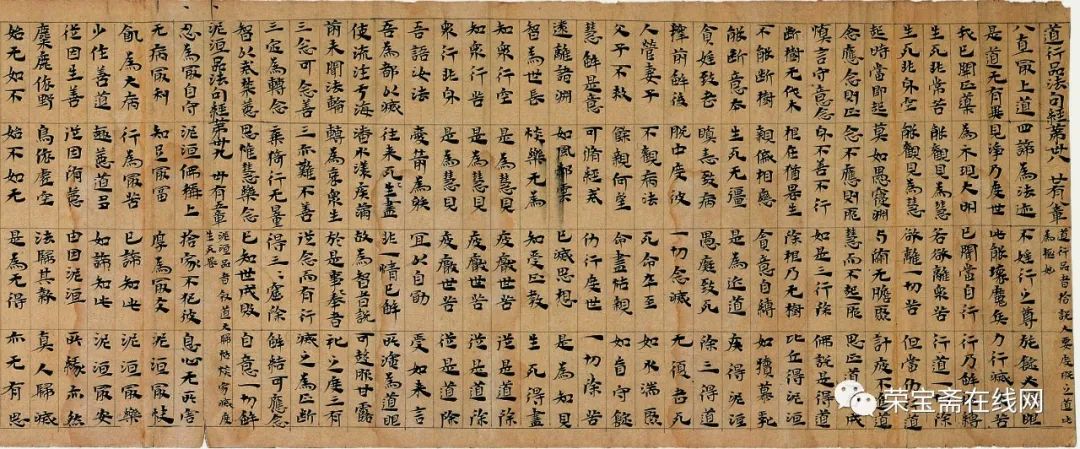 道行品法句經第廿八 廿有八章 道行品者指說大要度脫之道此為極妙
八直最上道 四諦為法迹 不婬行之尊 施燈大得眼
是道无有畏 見淨乃度世 此能壞魔兵 力行滅耶苦
我已開正道 為示現大明 已聞當自行 行乃解耶縛
生死非常苦 能觀見為慧 若欲離眾苦 行道一切除
生死非身空 能觀見為慧 欲離一切苦 但當勤行道
起時當即起 莫如愚覆淵 与墮无瞻聚 計疲不進道
念應念則正 念不應則耶 慧而不起耶 思正道乃成
慎言守意念 身不善不行 如是三行除 佛說是得道
斷樹无伐本 根在猶復生 除根乃无樹 比丘得泥洹
不能斷樹 親戚相戀 貪意自縛 如犢慕乳
能斷意本 生死无彊 是為近道 疾得泥洹
貪婬致老 瞋恚致病 愚癡致死 除三得道
釋前解後 脫中度彼 一切念滅 无復老死
人營妻子 不觀病法 死命卒至 如水湍驟
父子不救 餘親何望 命盡怙親 如盲守燈
慧解是意 可脩經戒 仂行度世 一切除苦
遠離諸淵 如風却雲 已滅思想 是為知見
智為世長 惔樂无為 知受正教 生死得盡
知眾行空 是為慧見 疲厭世苦 從是道除
知眾行苦 是為慧見 疲厭世苦 從是道除
眾行非身 是為慧見 疲厭世苦 從是道除
吾語汝法 愛箭為射 宜以自勗 受如來言
吾為都以滅 往來死生盡 非一情已解 所演為道眼
使流注于海 潘水漾疾滿 故為智者說 可趣服甘露
前未聞法輪 轉為哀眾生 於是事奉者 礼之度三有
三念可念善 三亦難不善 從念而有行 滅之為正斷
三定為轉念 棄猗行无量 得三三窟除 解結可應念
智以戒禁惡 思惟慧樂念 已知世成敗 自意一切解
泥洹品法句經第卅九 卅有五章 泥洹品者敘道大歸恬惔寂滅度生死畏
忍為最自守 泥洹佛稱上 捨家不犯戒 息心无所害
无病最利 知足最富 厚為最友 泥洹最快
飢為大病 行為最苦 已諦知此 泥洹最樂
少往善道 趣惡道多 如諦知此 泥洹最安
從因生善 從因墮惡 由因泥洹 所緣亦然
麋鹿依野 鳥依虛空 法歸其報 真人歸滅
始无如不 始不如无 是為无得 亦无有思
荣宝斋在线网